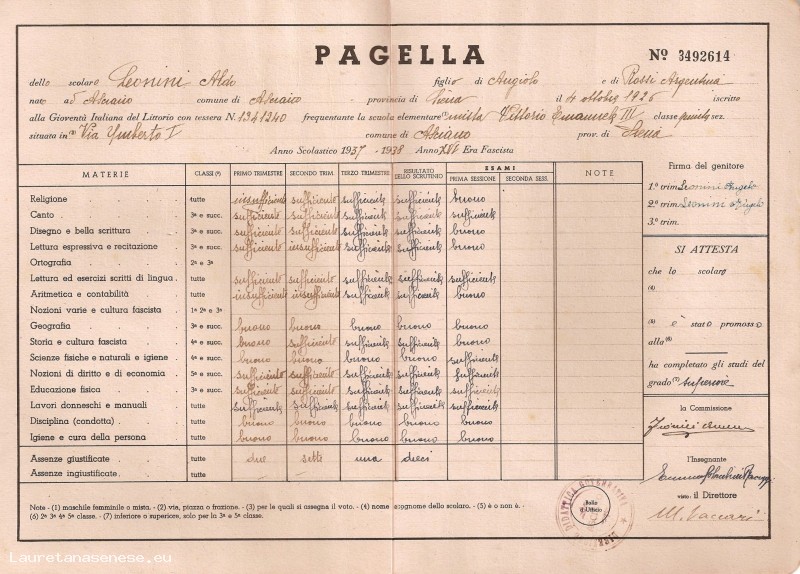 PAGELLA
Nº 3492614
dello scolaro Leonini Aldo figlio di Angiolo e di Rossi Argentina
nato ad Asciano comune di Asciano provincia di Siena il 4 ottobre 1926 iscritto
alla Gioventù Italiana del Littorio con tessera N. 1241240 frequentante la scuola elementare (1) mista Vittorio Emanuele III classe quinta sez.
situata in (2) Via Umberto I comune di Asciano prov. di Siena
Anno Scolastico 1937 - 1938 Anno XVI Era Fascista
MATERIE CLASSI (3) PRIMO TRIMESTRE SECONDO TRIM. TERZO TRIMESTRE RISULTATO DELLO SCRUTINIO ESAMI PRIMA SESSIONE SECONDA SESS. NOTE
Religione tutte insufficiente sufficiente sufficiente sufficiente buono
Canto 3ª e succ. sufficiente sufficiente sufficiente sufficiente sufficiente
Disegno e bella scrittura 3ª e succ. sufficiente sufficiente sufficiente sufficiente buono
Lettura espressiva e recitazione 3ª e succ. sufficiente insufficiente sufficiente sufficiente buono
Ortografia 2ª e 3ª
Lettura ed esercizi scritti di lingua tutte sufficiente sufficiente sufficiente sufficiente sufficiente
Aritmetica e contabilità tutte insufficiente insufficiente sufficiente sufficiente buono
Nozioni varie e cultura fascista 1ª 2ª e 3ª
Geografia 3ª e succ. buono buono buono buono buono
Storia e cultura fascista 4ª e succ. buono sufficiente sufficiente sufficiente buono
Scienze fisiche e naturali e igiene 4ª e succ. buono buono buono buono sufficiente
Nozioni di diritto e di economia 5ª e succ. sufficiente sufficiente sufficiente sufficiente sufficiente
Educazione fisica 3ª e succ. sufficiente sufficiente sufficiente sufficiente sufficiente
Lavori donneschi e manuali tutte sufficiente sufficiente sufficiente sufficiente sufficiente
Disciplina (condotta) tutte buono buono buono buono buono
Igiene e cura della persona tutte buono buono buono buono buono
Assenze giustificate tutte due sette una dieci
Assenze ingiustificate tutte
Firma del genitore
1.º trim. Leonini Angelo
2.º trim. Leonini Angelo
3.º trim.
SI ATTESTA
che lo scolaro
(4)
(5) è stato promosso
alla (6)
ha completato gli studi del
grado (7) superiore
la Commissione
l'Insegnante
visto: il Direttore
M. Vaccari
Bollo d'Ufficio
Note - (1) maschile femminile o mista. - (2) via, piazza o frazione. - (3) per le quali si assegna il voto. - (4) nome cognome dello scolaro. - (5) è o non è. -
(6) 2ª 3ª 4ª 5ª classe. - (7) inferiore o superiore, solo per la 3ª e 5ª classe.
Lauretanasenese.eu